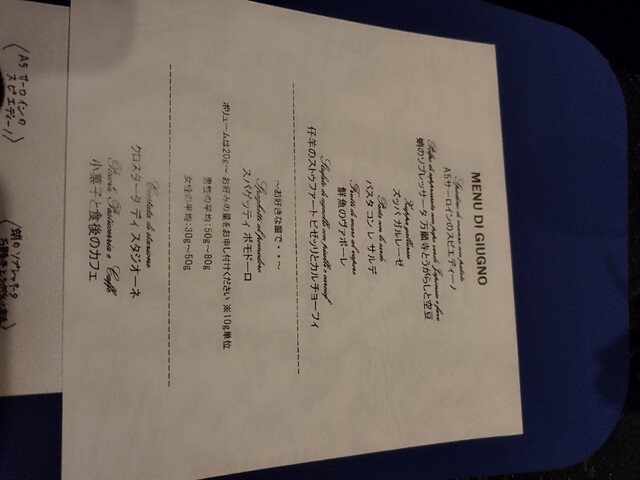 MENU DI GIUGNO
A5サーロインのスピエディーノ
蛸のソプレッサータ 万願寺とうがらしと空豆
Zuppa gallurese
ズッパ ガルレーゼ
Pasta con le sarde
パスタ コン レ サルデ
Frutti di mare al vapore
鮮魚のヴァポーレ
仔羊のストゥファート ピゼッリとカルチョーフィ
～お好きな量で・・・～
Spaghetti al pomodoro
スパゲッティ ポモドーロ
ボリュームは20g～ お好みの量をお申し付けください ※10g単位
男性の平均:50g～80g
女性の平均:30g～50g
Crostata di stagione
クロスタータ ディ スタジオーネ
Piccola Pasticceria e Caffè
小菓子と食後のカフェ
(A5サーロインの
スピエディーノ)